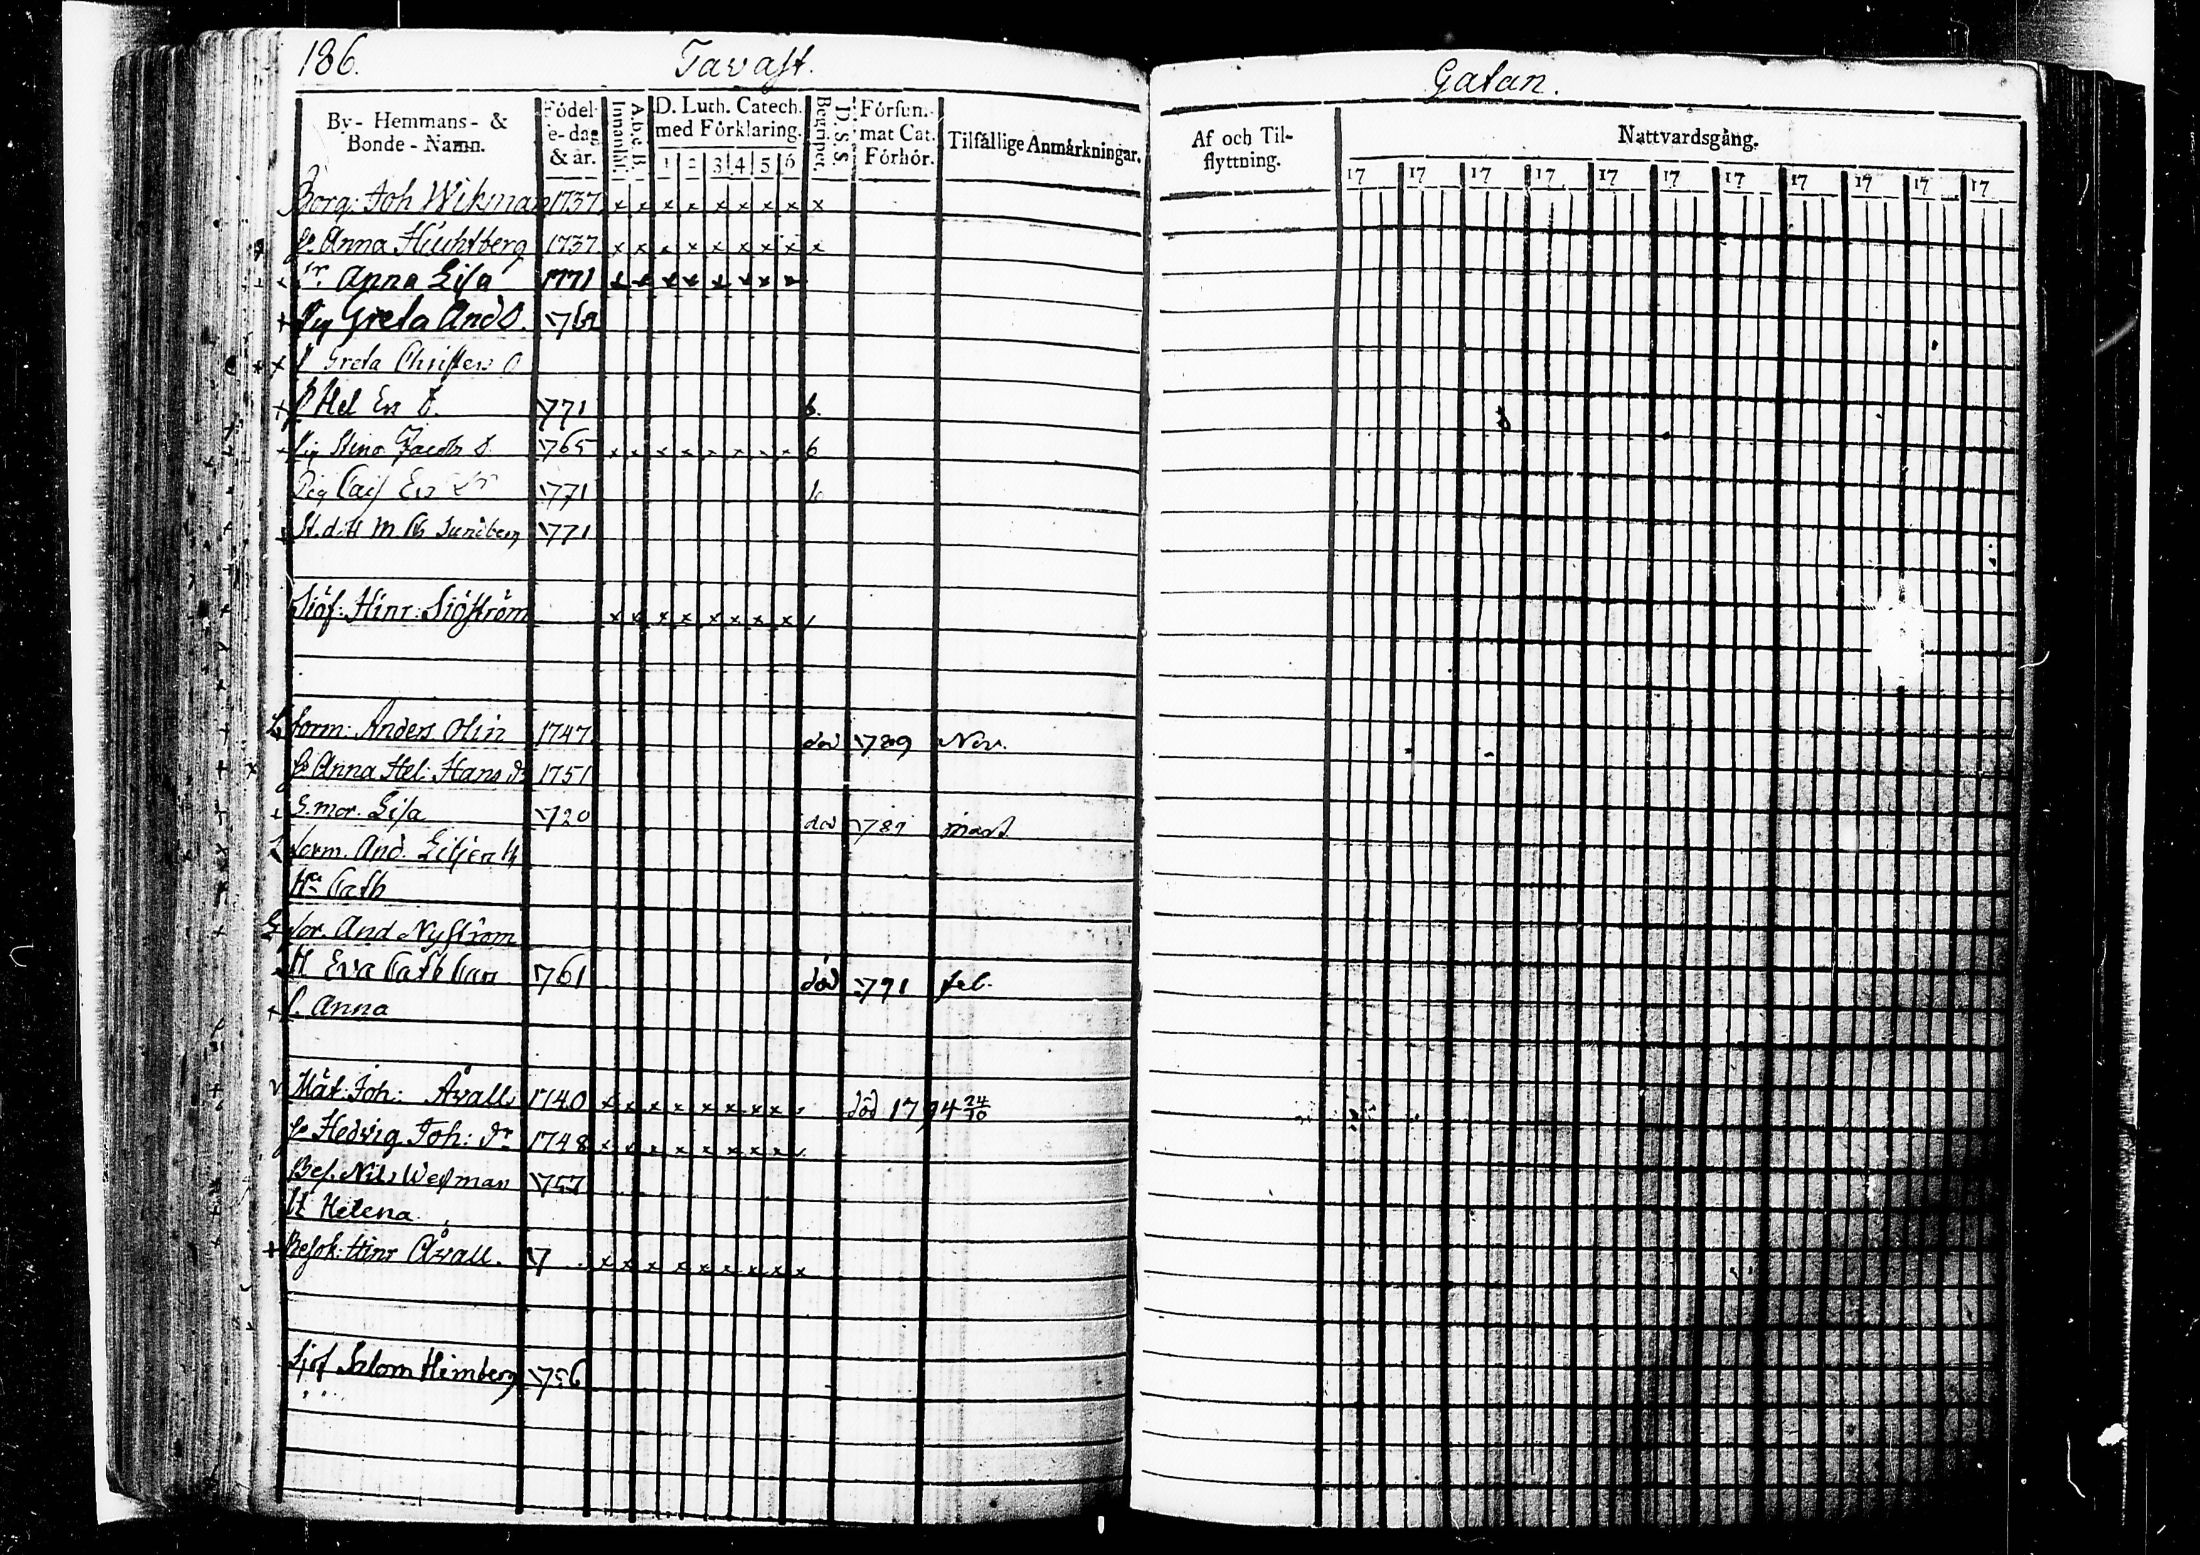 186.
Tavast.
Gatan.
By- Hemmans- & Bonde-Namn.
Födel-e-dag & år.
Innanläs.
A.b.c.B.
D. Luth. Catech. med Förklaring.
1 2 3 4 5 6
Begripet.
D.S.S.
Försum- mat Cat. Förhör.
Tilfällige Anmärkningar.
Af och Til- flyttning.
Nattvardsgång.
17 17 17 17 17 17 17 17 17 17 17
Borg: Joh Wikman 1737 x x x x x x x x x
Anna 1737 x x x x x x x x x
Anna Lisa 1771 x x x x x x x x
Pig Greta And D.
Greta Christers D
Hel Er D. 1771 b.
Pig Stina Jacobs D 1765 x x x x x x x x b
Pig Caj Er 1771 b
Sundberg 1771
Siöf: Hinr: Siöström x x x x x x x x
form: Anders Olin 1747. död 1789 Nov.
Anna Hel: Hans dr 1751
S. mor. Lisa 1720 död 1789 mart.
form. And.
Cath
for. And Nyström
H Eva Cath 1761 död 1791 feb.
Anna
Mät: Joh: Åvall 1740 x x x x x x x x död 1794 24/10
Hedvig Joh: dr 1748 x x x x x x x x
Bes. Nils Wesman 1757
H Helena
Besök: Hinr Åvall. 17 x x x x x x x x x
Sjöf Salom Heimberg 1756